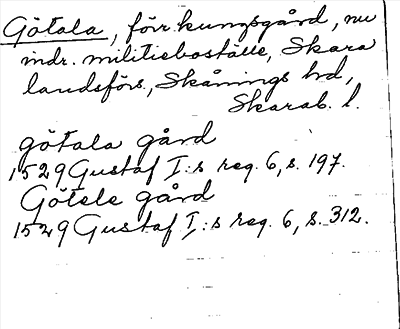 Götala, förr kungsgård, nu
indr. militieboställe, Skara
landsförs., Skånings hd,
Skarab. l.
götala gård
1529 Gustaf I:s reg. 6, s. 197.
Götele gård
1529 Gustaf I:s reg. 6, s. 312.